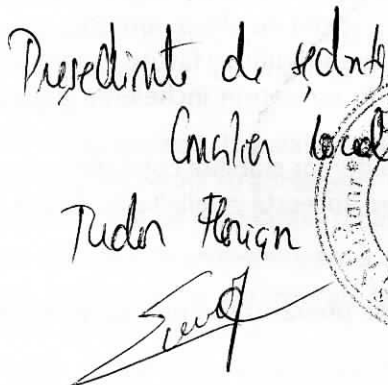 Președinte de ședință
Consilier local
Tudor Florian